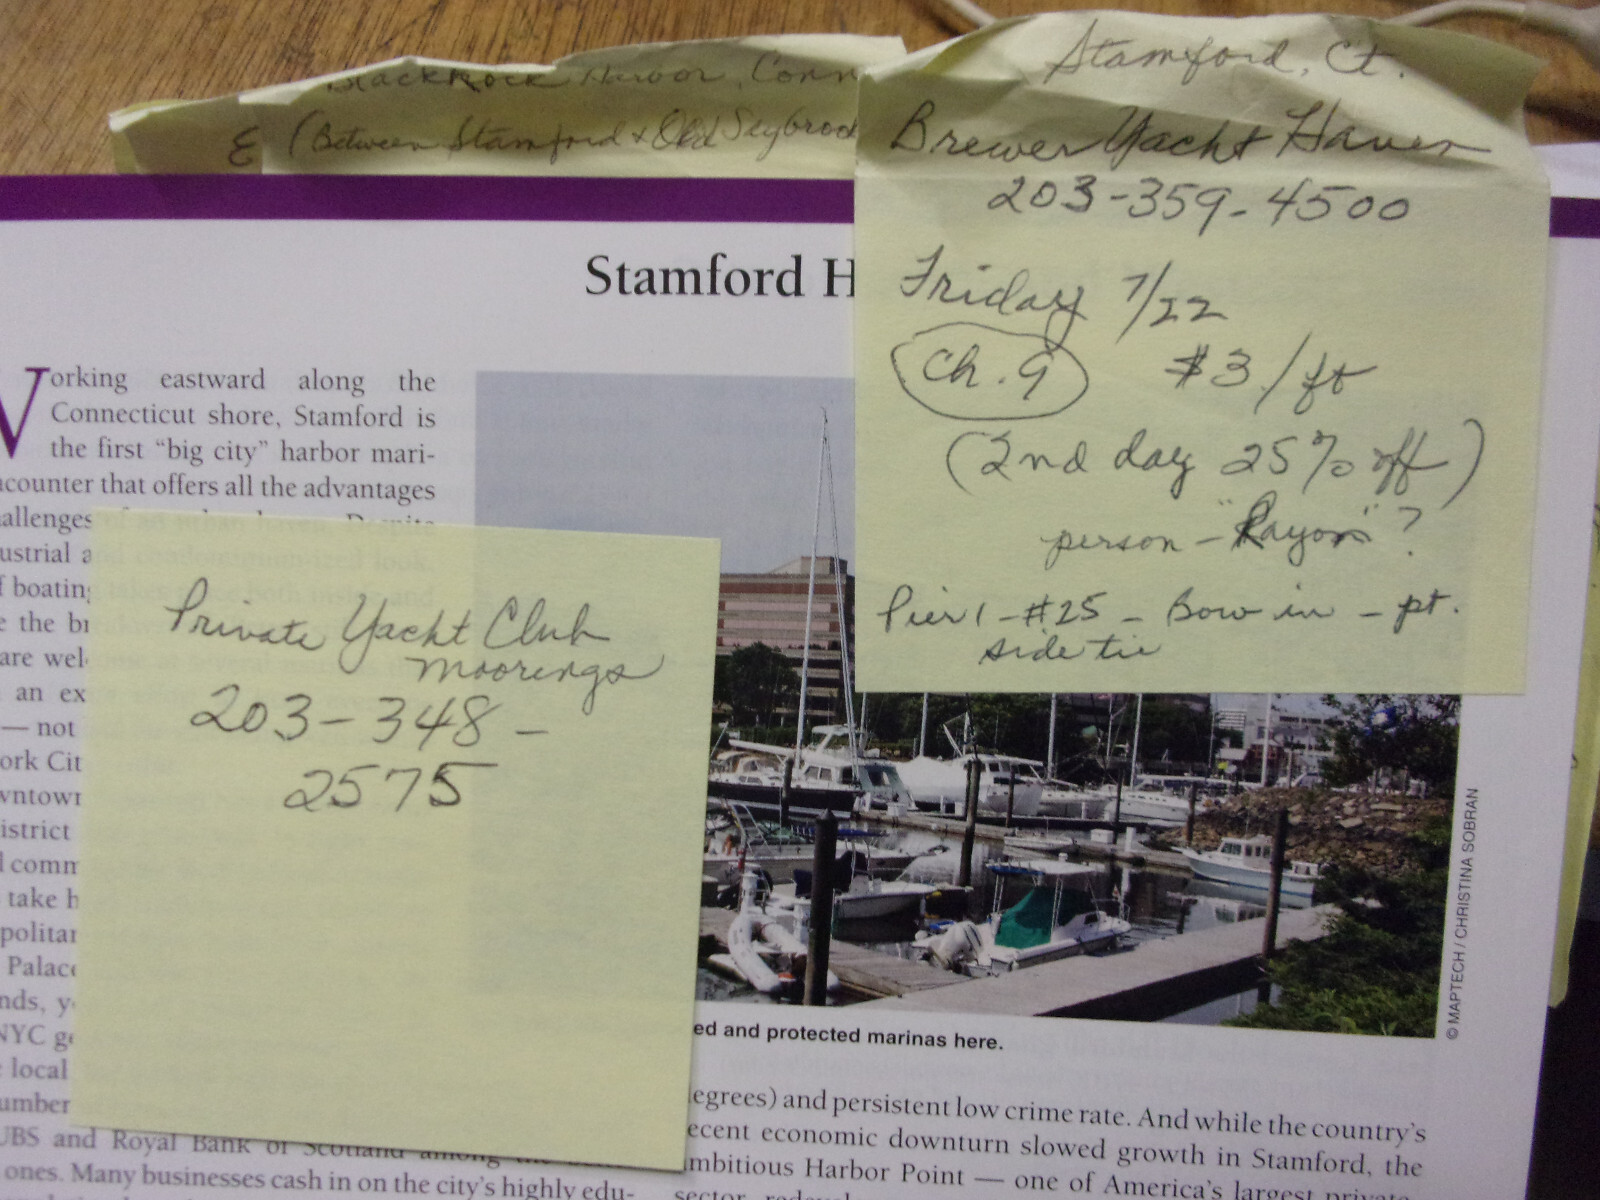 BlackRock Harbor, Conn
E (Between Stamford & Old Seybrook
Stamford, Ct.
Brewer Yacht Haven
203-359-4500
Friday 7/22
Ch. 9 $3/ft
(2nd day 25% off)
person - "Rayon"?
Pier 1 - #25 - Bow in - pt.
side tie
Stamford H
Working eastward along the
Connecticut shore, Stamford is
the first “big city” harbor mari-
ncounter that offers all the advantages
hallenges of an urban haven. Despite
ustrial and condominiumized look,
f boating takes place both inside and
e the br
are wel
an ex
— not
ork Cit
wntown
istrict
l comm
take h
politan
Palace
nds, y
NYC ge
local
umber
UBS and Royal Bank of Scotland among the
ones. Many businesses cash in on the city's highly edu-
Private Yacht Club
moorings
203-348-
2575
ed and protected marinas here.
© MAPTECH / CHRISTINA SOBRAN
degrees) and persistent low crime rate. And while the country's
recent economic downturn slowed growth in Stamford, the
ambitious Harbor Point — one of America's largest private-
sector